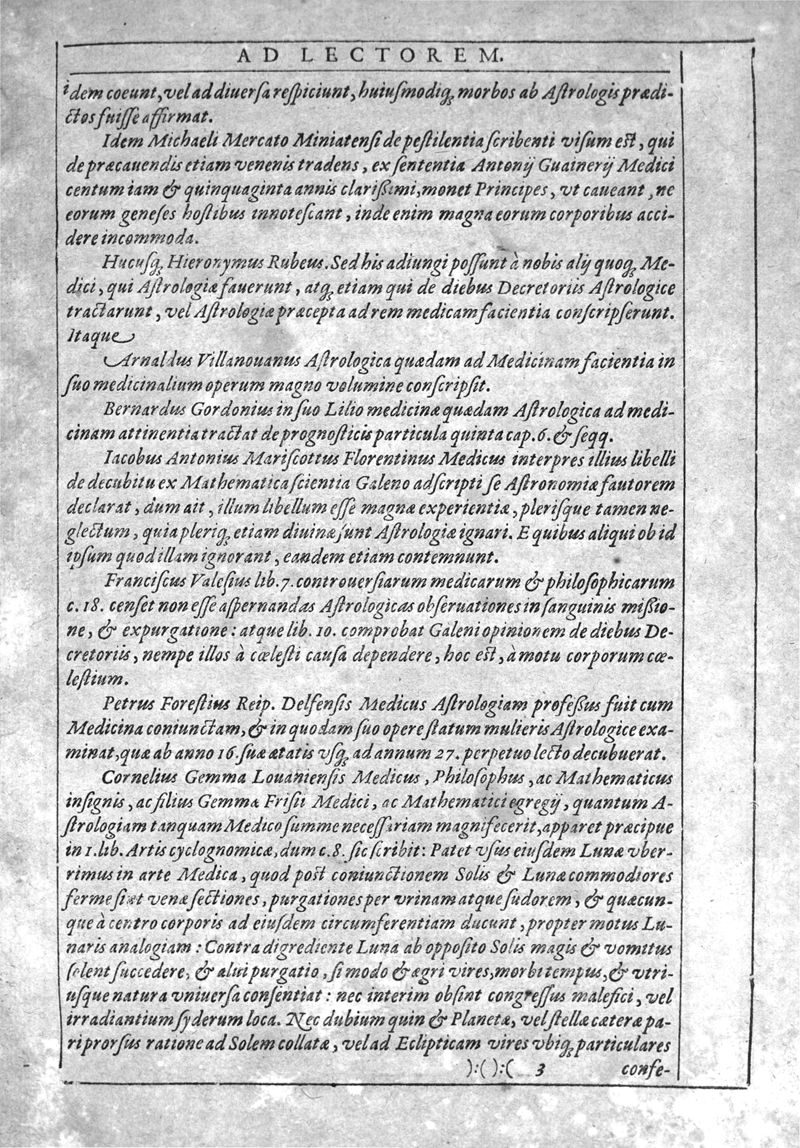 AD LECTOREM.
idem coeunt, vel ad diuersa respiciunt, huiusmodiq; morbos ab Astrologis prædi-
ctos fuisse affirmat.
Idem Michaeli Mercato Miniatensi de pestilentia scribenti visum est, qui
de præcauendis etiam venenis tradens, ex sententia Antonij Guainerij Medici
centum iam & quinquaginta annis clarißimi, monet Principes, vt caueant, ne
eorum geneses hostibus innotescant, inde enim magna eorum corporibus acci-
dere incommoda.
Hucusq; Hieronymus Rubeus. Sed his adiungi possunt à nobis alij quoq; Me-
dici, qui Astrologiæ fauerunt, atq; etiam qui de diebus Decretoriis Astrologice
tractarunt, vel Astrologiæ præcepta ad rem medicam facientia conscripserunt.
Itaque
Arnaldus Villanouanus Astrologica quædam ad Medicinam facientia in
suo medicinalium operum magno volumine conscripsit.
Bernardus Gordonius in suo Lilio medicinæ quædam Astrologica ad medi-
cinam attinentia tractat de prognosticis particula quinta cap. 6. & seqq.
Iacobus Antonius Mariscottus Florentinus Medicus interpres illius libelli
de decubitu ex Mathematica scientia Galeno adscripti se Astronomiæ fautorem
declarat, dum ait, illum libellum esse magnæ experientiæ, plerisque tamen ne-
glectum, quia pleriq; etiam diuinæ sunt Astrologiæ ignari. E quibus aliqui ob id
ipsum quod illam ignorant, eandem etiam contemnunt.
Franciscus Valesius lib. 7. controuersiarum medicarum & philosophicarum
c. 18. censet non esse aspernandas Astrologicas obseruationes in sanguinis mißio-
ne, & expurgatione: atque lib. 10. comprobat Galeni opinionem de diebus De-
cretoriis, nempe illos à cœlesti causa dependere, hoc est, à motu corporum cœ-
lestium.
Petrus Forestius Reip. Delfensis Medicus Astrologiam professus fuit cum
Medicina coniunctam, & in quodam suo opere statum mulieris Astrologice exa-
minat, quæ ab anno 16. suæ ætatis vsq; ad annum 27. perpetuo lecto decubuerat.
Cornelius Gemma Louaniensis Medicus, Philosophus, ac Mathematicus
insignis, ac filius Gemmæ Frisii Medici, ac Mathematici egregij, quantum A-
strologiam tanquam Medico summe necessariam magnifecerit, apparet præcipue
in 1. lib. Artis cyclognomicæ, dum c. 8. sic scribit: Patet vsus eiusdem Lunæ vber-
rimus in arte Medica, quod post coniunctionem Solis & Lunæ commodiores
ferme sint venæ sectiones, purgationes per vrinam atque sudorem, & quæcun-
que à centro corporis ad eiusdem circumferentiam ducunt, propter motus Lu-
naris analogiam: Contra digrediente Luna ab opposito Solis magis & vomitus
solent succedere, & alui purgatio, si modo & ægri vires, morbi tempus, & vtri-
usque natura vniuersa consentiat: nec interim obsint congressus malefici, vel
irradiantium syderum loca. Nec dubium quin & Planetæ, vel stellæ cæteræ pa-
ri prorsus ratione ad Solem collatæ, vel ad Eclipticam vires vbiq; particulares
):( ):( 3 conse-